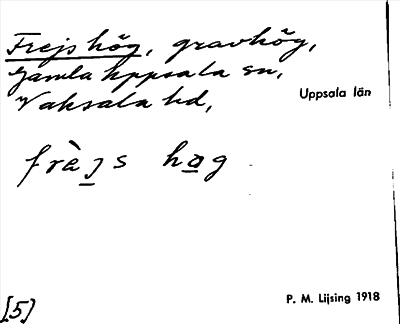 Frejs hög, gravhög,
Gamla Uppsala sn,
Vaksala hd,
Uppsala län
frèȷs hog
P. M. Lijsing 1918
[5]